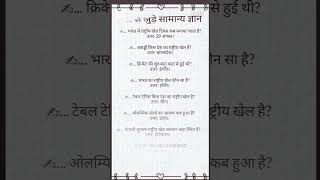 ... को जुड़े सामान्य ज्ञान
✍... भारत में राष्ट्रीय खेल दिवस कब मनाया जाता है?
उत्तर: 29 अगस्त।
✍... कबड्डी किस देश का राष्ट्रीय खेल है?
उत्तर: बांग्लादेश।
✍... क्रिकेट की शुरुआत कहां से हुई थी?
उत्तर: इंग्लैंड।
✍... भारत का राष्ट्रीय खेल कौन सा है?
उत्तर: हॉकी।
✍... टेबल टेनिस किस देश का राष्ट्रीय खेल है?
उत्तर: चीन।
✍... ओलम्पिक खेलों का आरम्भ कब हुआ?
✍... क्रि
से हुई थी?
✍... भार
ल है?
✍... टेबल
खेल है?
✍... ओलम्पि
कब हुआ है?